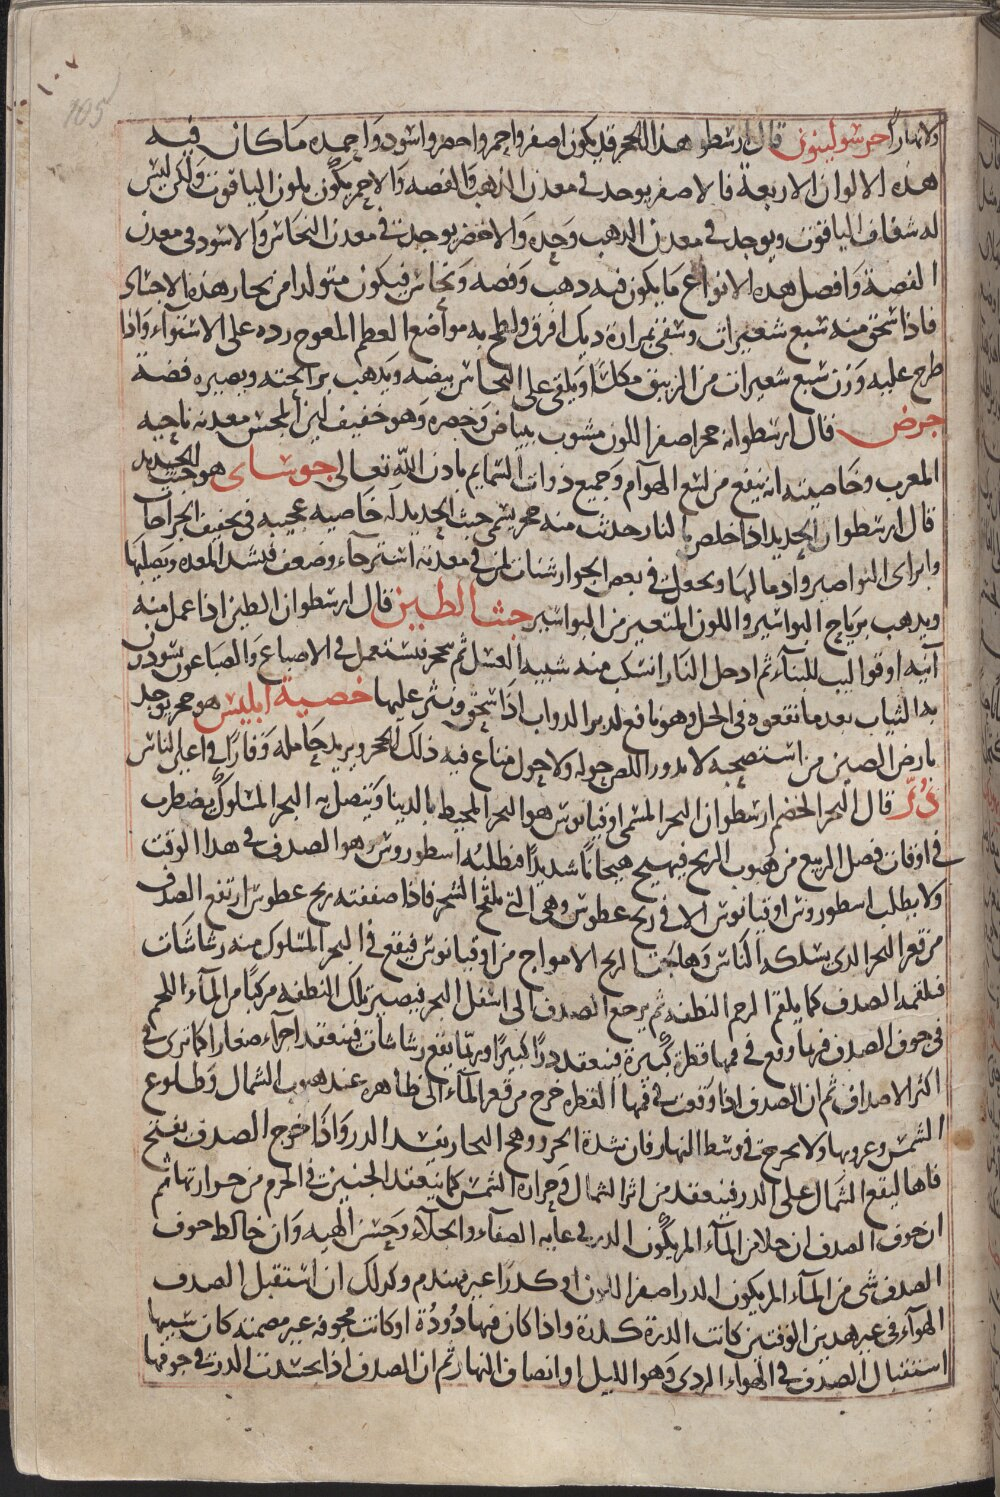 ١٠٧
105
ولا نهارا حرسولينون قال ارسطو هذا الحجر قد يكون اصفر واحمر واخضر واسود واجوده ما كان فيه
هذه الالوان الاربعة فالاصفر يوجد فى معدن الذهب والفضه والاحمر يكون بلون الياقوت ولكن ليس
له شفاف الياقوت ويوجد فى معدن الذهب وحده والاخضر يوجد فى معدن النحاس والاسود فى معدن
الفضة وافضل هذه الانواع ما يكون فيه ذهب وفضه ونحاس فيكون متولدا من بخار هذه الاجساد
فاذا سحق منه سبع شعيرات وسقى بمرارة ديك افرق ولطخ به مواضع العظم المعوج رده على الاستواء واذا
طرح عليه وزن سبع شعيرات من الزيبق مكلسا ويلقى على النحاس بيضه ويذهب برايحته ويصيره فضة
جرض قال ارسطو انه حجر اصفر اللون مشوب ببياض وخضره وهو خفيف لين المجس معدنه ناحيه
المغرب وخاصيته انه ينفع من لسع الهوام وجميع ذوات السمايم باذن الله تعالى جوساى هو خبث الحديد
قال ارسطو ان الحديد اذا خلص بالنار حدث منه حجر يسمى خبث الحديد له خاصيه عجيبه فى تجفيف الجراحات
وابراى النواصير وادمالها ويجعل فى بعض الجوارشنات لمن فى معدته استرخاء وضعف فيشد المعده ويصلبها
ويذهب برياح البواسير واللون المتغير من البواسير جث الطين قال ارسطو ان الطين اذا عمل منه
آنيه او قواليب للبنآء ثم ادخل النار انسكب منه شبيه العسل ثم يحجر فيستعمل فى الاصباغ والصباغون يسودن
به الثياب بعد ما نقعوه فى الخل وهو نافع لدبر الدواب اذا سحق ونثر عليها خصية ابليس هو حجر يوجد
بارض الصين من استصحبه لا يدور اللص حوله ولا حول متاع فيه ذلك الحجر ويزيد حامله وقارا فى اعين الناس
دُرّ قال البحر الخضم ارسطو ان البحر المسمى اوقيانوس هو البحر المحيط بالدينا ويتصل به البحر المسلوك يضطرب
فى اوقات فصل الربيع من هبوب الريح فيهيج هيجانا شديدا فيطلبه اسطوروس هو الصدف فى هذا الوقت
ولا يطلب اسطوروس اوقيانوس الا فى ريح عطوس وهى التى تلقح الشجر فاذا صفقته ريح عطوس ارتفع الصدف
من قعر البحر الذى يسلكه الناس وهاجت الريح الامواج من اوقيانوس فيقع فى البحر المسلوك منه رشاشات
فيلقمه الصدف كما يلقم الرحم النطفه ثم يرجع الصدف الى اسفل البحر فيصير تلك النطفه مركبا من الماء اللحم
فى جوف الصدف فربما وقع فى فمها قطرة كبيرة فينعقد درا كبيرا وربما يقع رشاشات فينعقد اجزاء صغارا كما ترى فى
اكثر الاصداف ثم ان الصدف اذا وقعت فى فمها القطره خرج من قعر المآء الى ظاهره عند هبوب الشمال وطلوع
الشمس وغروبها ولا يخرج فى وسط النهار فان شدة الحر ووهج البخار يفسد الدر واذا خرج الصدف يفتح
فاها ليقع الشمال على الدر فينعقد من اثر الشمال وحرارة الشمس كما ينعقد الجنين فى الرحم من حرارتها ثم
ان جوف الصدف ان خلا من المآء المر يكون الدر فى غايه الصفآء والجلآء وحسن الهيه وان خالط جوف
الصدف شى من المآء المر يكون الدر اصفر اللون او كدرا غير مهندم وكذلك ان استقبل الصدف
الهوآء فى غير هذين الوقتين كانت الدرة كدرة واذا كان فيها دودة او كانت مجوفه غير مصمته كان سببها
استقبال الصدف فى الهواء الردى وهو الليل او انصاف النهار ثم ان الصدف اذا تجسدت الدرة فى جوفها